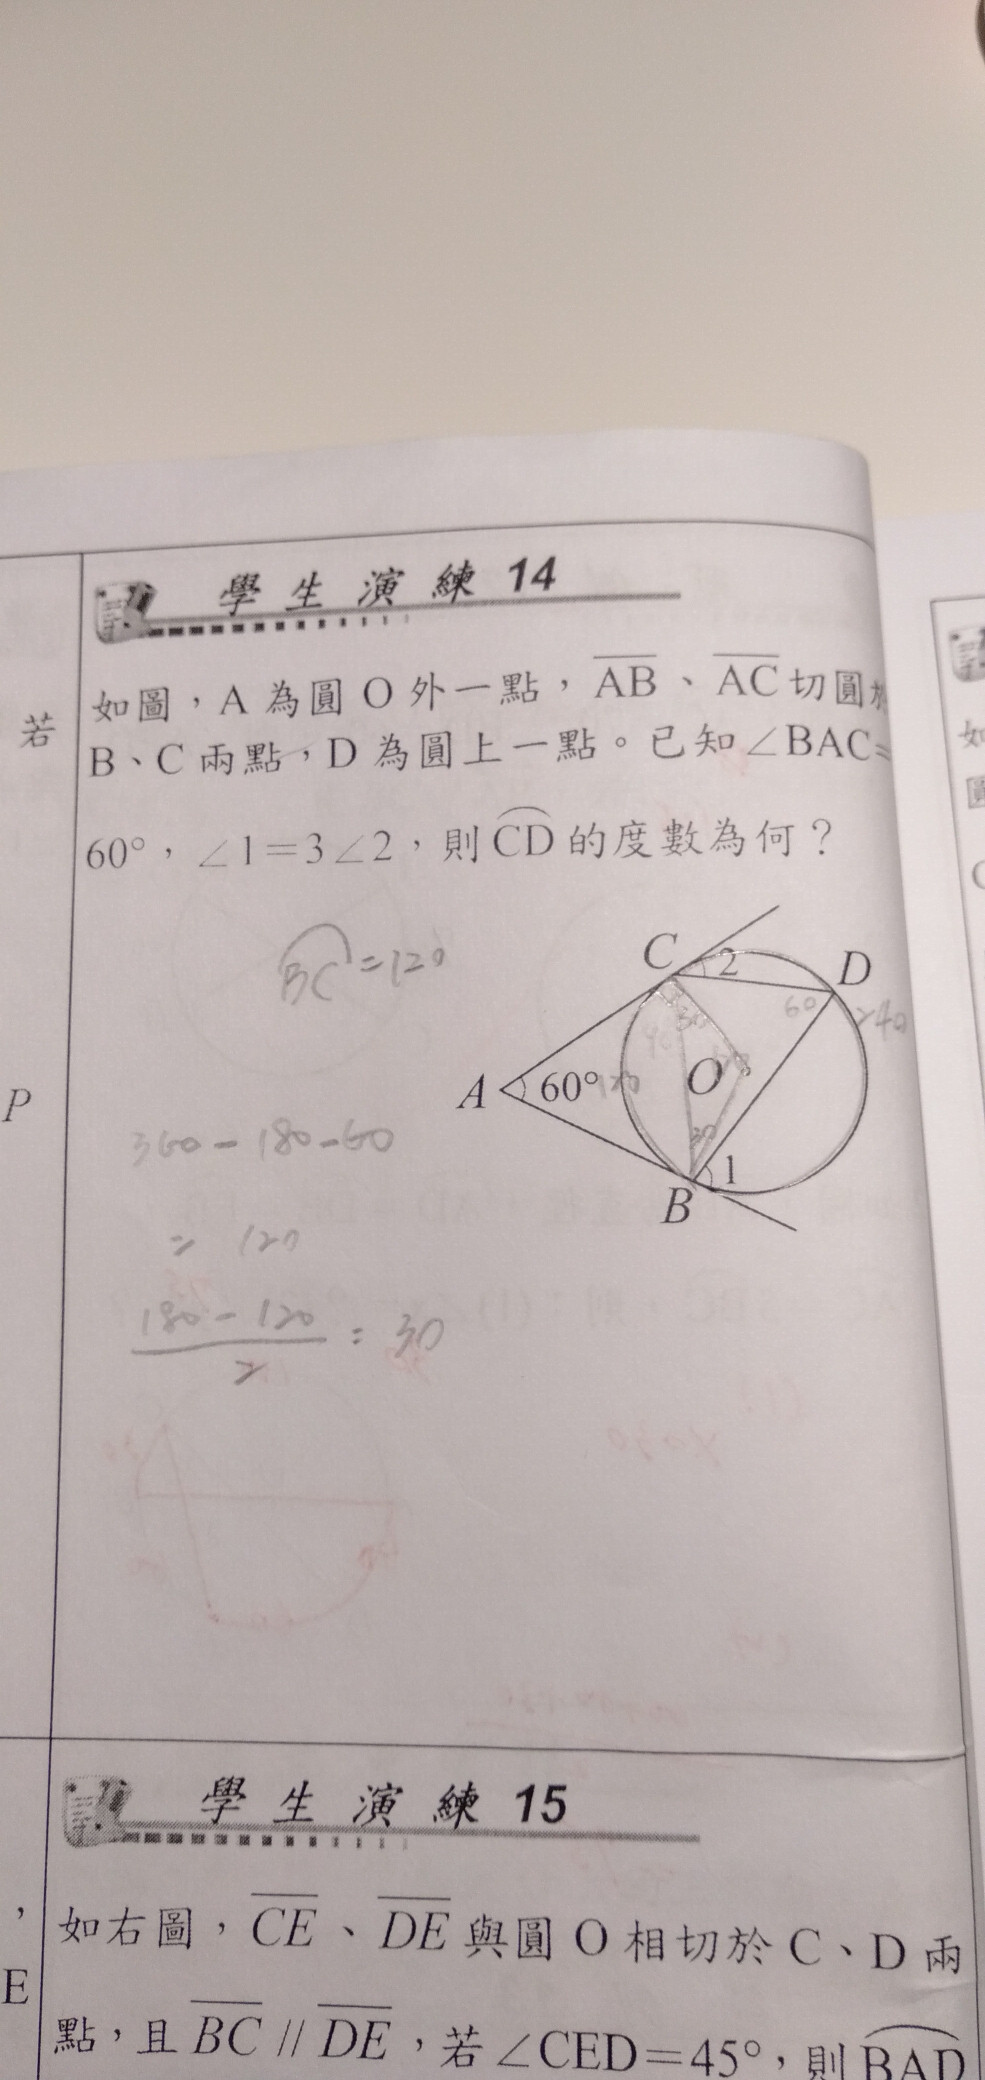 學生演練 14
如圖，A 為圓 O 外一點，AB、AC切圓於
若
B、C 兩點，D 為圓上一點。已知∠BAC=
60°，∠1=3∠2，則CD的度數為何？
BC=120
C 2 D
60 240
30
P
A 60° 120 O
360-180-60
30
1
B
= 120
180-120
2
= 30
學生演練 15
，
如右圖，CE、DE與圓 O 相切於 C、D 兩
E
點，且 BC // DE，若∠CED=45°，則BAD
如
圓